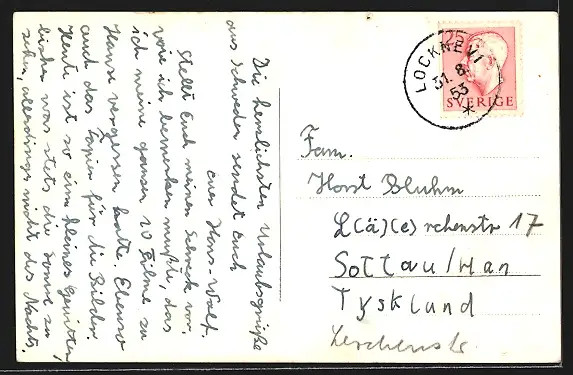 Die herrlichsten Urlaubsgrüße
aus Schweden sendet Euch
euer Hans-Wolf.
Stellt Euch meinen Schreck vor,
wie ich bemerken mußte, das
ich meine ganzen 10 Filme zu
Hause vergessen hatte. Ebenso
auch das Papier für die Bilder.
Heute ist so ein kleines Gewitter,
sonst stets die Sonne zu
sehen, allerdings nicht des Nachts.
LOCKNEVI
31. 8. 53
25
SVERIGE
Fam.
Horst Bluhm
L(ä)(e)rchenstr 17
Soltau/Han
Tyskland
Lerchenstr.